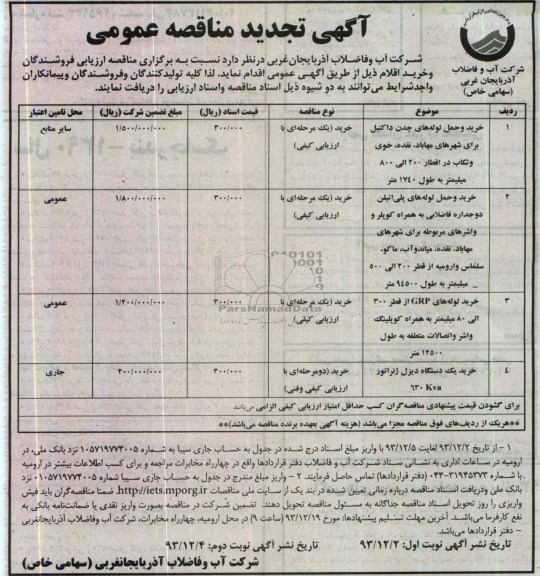 آگهی تجدید مناقصه عمومی
شرکت آب و فاضلاب
آذربایجان غربی
(سهامی خاص)
شرکت آب وفاضلاب آذربایجان‌غربی درنظر دارد نسبت به برگزاری مناقصه ارزیابی فروشندگان
وخرید اقلام ذیل از طریق آگهی عمومی اقدام نماید. لذا کلیه تولیدکنندگان وفروشندگان وپیمانکاران
واجدشرایط می‌توانند به دو شیوه ذیل اسناد مناقصه واسناد ارزیابی را دریافت نمایند.
ردیف موضوع نوع مناقصه قیمت اسناد (ریال) مبلغ تضمین شرکت (ریال) محل تامین اعتبار
۱ خرید وحمل لوله‌های چدن داکتیل خرید (یک مرحله‌ای با ۳۰۰/۰۰۰ ۱/۵۰۰/۰۰۰/۰۰۰ سایر منابع
برای شهرهای مهاباد، نقده، خوی ارزیابی کیفی)
وتکاب در اقطار ۲۰۰ الی ۸۰۰
میلیمتر به طول ۱۷۴۰ متر
۲ خرید وحمل لوله‌های پلی‌اتیلن خرید (یک مرحله‌ای با ۳۰۰/۰۰۰ ۱/۸۰۰/۰۰۰/۰۰۰ عمومی
دوجداره فاضلابی به همراه کوپلر و ارزیابی کیفی)
واشرهای مربوطه برای شهرهای
مهاباد، نقده، میاندوآب، ماکو،
سلماس وارومیه از قطر ۲۰۰ الی ۵۰۰
میلیمتر به طول ۹۴۵۰۰ متر
۳ خرید لوله‌های GRP از قطر ۳۰۰ خرید (یک مرحله‌ای با ۳۰۰/۰۰۰ ۱/۲۰۰/۰۰۰/۰۰۰ عمومی
الی ۸۰ میلیمتر به همراه کوپلینگ ارزیابی کیفی)
واشر واتصالات متعلقه به طول
۱۲۵۰۰ متر
۴ خرید یک دستگاه دیزل ژنراتور خرید (دومرحله‌ای با ۳۰۰/۰۰۰ ۲۰۰/۰۰۰/۰۰۰ جاری
۶۳۰ Kva ارزیابی کیفی وفنی)
برای گشودن قیمت پیشنهادی مناقصه‌گران کسب حداقل امتیاز ارزیابی کیفی الزامی می‌باشد
**هریک از ردیف‌های فوق مناقصه مجزا می‌باشد (هزینه آگهی بعهده برنده مناقصه می‌باشد)**
۱ – از تاریخ ۹۳/۱۲/۲ لغایت ۹۳/۱۲/۵ با واریز مبلغ اسناد درج شده در جدول به حساب جاری سیبا به شماره ۰۱۰۵۷۱۹۷۷۴۰۰۵ نزد بانک ملی، در
ارومیه در ساعات اداری به نشانی ستاد شرکت آب و فاضلاب دفتر قراردادها واقع در چهارراه مخابرات مراجعه و برای کسب اطلاعات بیشتر در ارومیه
با شماره ۳۱۹۴۵۳۷۳-۰۴۴ (دفتر قراردادها) تماس حاصل فرمایند. ۲ – واریز مبلغ مندرج در جدول به حساب جاری سیبا شماره ۰۱۰۵۷۱۹۷۷۴۰۰۵ نزد
بانک ملی ودریافت اسناد مناقصه درباره زمانی تعیین شده در بند یک از سایت ملی مناقصات http://iets.mporg.ir. ضمنا مناقصه‌گران باید فیش
واریزی را روز تحویل اسناد مناقصه جداگانه به مسئول مناقصه تحویل دهند. تضمین شرکت در مناقصه بصورت واریز نقدی یا ضمانت‌نامه بانکی به
نفع کارفرما می‌باشد. آخرین مهلت تسلیم پیشنهادها: مورخ ۹۳/۱۲/۱۹ (ساعت ۹) در محل ارومیه، چهارراه مخابرات، شرکت آب وفاضلاب آذربایجانغربی
– دفتر قراردادها می‌باشد.
تاریخ نشر آگهی نوبت اول: ۹۳/۱۲/۲ تاریخ نشر آگهی نوبت دوم: ۹۳/۱۲/۴
شرکت آب وفاضلاب آذربایجانغربی (سهامی خاص)
ParsNamadData